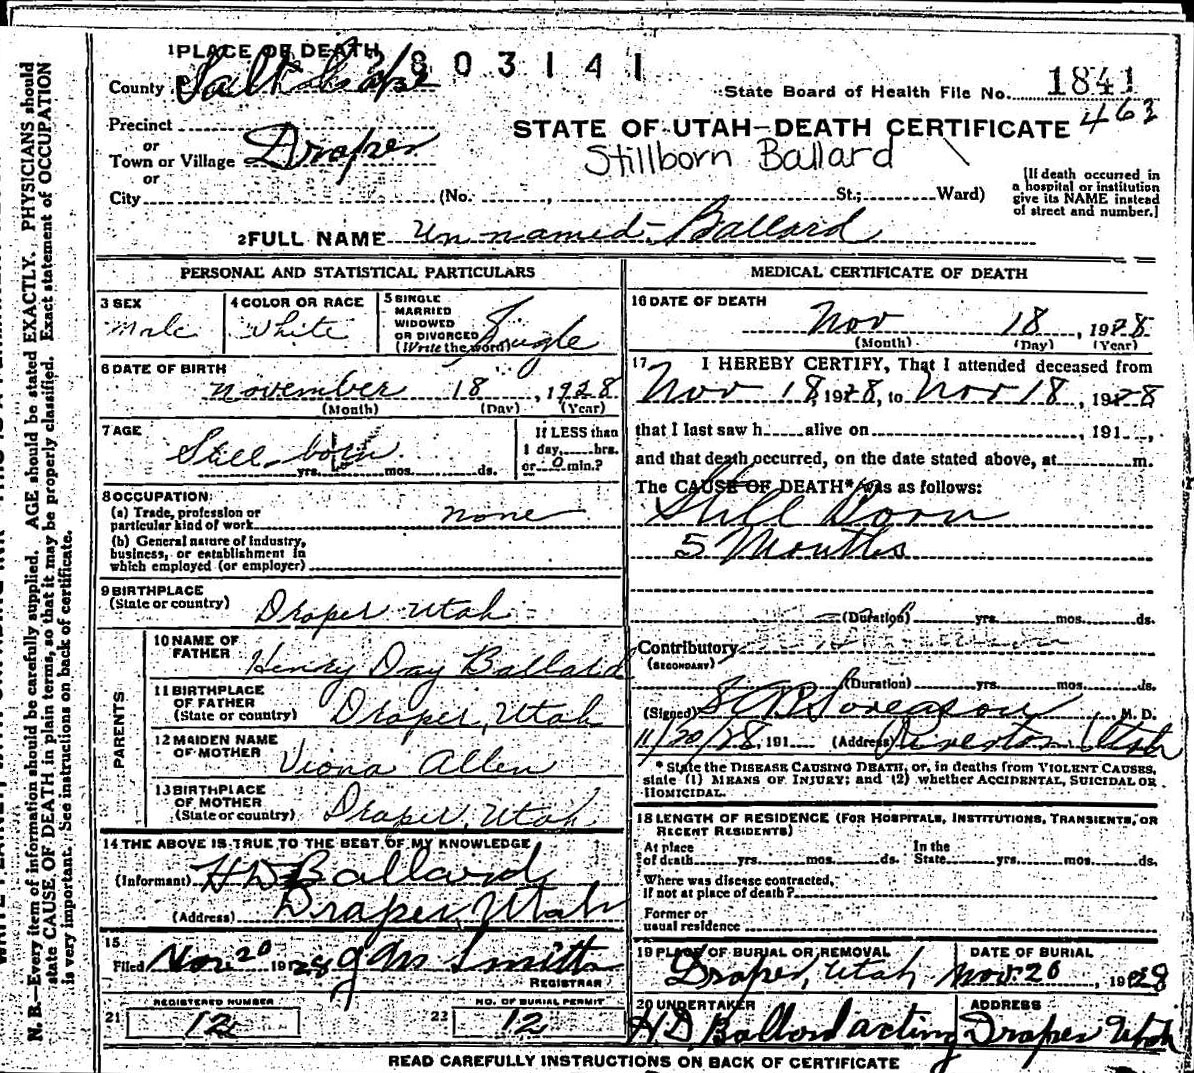 1 PLACE OF DEATH
803141
County Salt Lake
State Board of Health File No. 1841
463
Precinct
or
Town or Village Draper
or
City (No. , St.; Ward)
STATE OF UTAH—DEATH CERTIFICATE
Stillborn Ballard
[If death occurred in
a hospital or institution
give its NAME instead
of street and number.]
2 FULL NAME Un-named-Ballard
PERSONAL AND STATISTICAL PARTICULARS
3 SEX
Male
4 COLOR OR RACE
White
5 SINGLE
MARRIED
WIDOWED
OR DIVORCED
(Write the word)
Single
6 DATE OF BIRTH
November 18, 1928
(Month) (Day) (Year)
7 AGE
Still born
yrs. mos. ds.
If LESS than
1 day, hrs.
or 0 min.?
8 OCCUPATION:
(a) Trade, profession or
particular kind of work none
(b) General nature of industry,
business, or establishment in
which employed (or employer)
9 BIRTHPLACE
(State or country) Draper Utah
PARENTS
10 NAME OF
FATHER
Henry Day Ballard
11 BIRTHPLACE
OF FATHER
(State or country) Draper, Utah
12 MAIDEN NAME
OF MOTHER
Viona Allen
13 BIRTHPLACE
OF MOTHER
(State or country) Draper, Utah
14 THE ABOVE IS TRUE TO THE BEST OF MY KNOWLEDGE
(Informant) H D Ballard
(Address) Draper, Utah
15
Filed Nov 20 1928 Smith
REGISTRAR
REGISTERED NUMBER
21 12
NO. OF BURIAL PERMIT
22 12
MEDICAL CERTIFICATE OF DEATH
16 DATE OF DEATH
Nov 18, 1928
(Month) (Day) (Year)
17 I HEREBY CERTIFY, That I attended deceased from
Nov 18, 1928, to Nov 18, 1928
that I last saw h alive on , 191 ,
and that death occurred, on the date stated above, at m.
The CAUSE OF DEATH* was as follows:
Still Born
5 Months
(Duration) yrs. mos. ds.
Contributory
(SECONDARY)
(Duration) yrs. mos. ds.
(Signed) Sorenson, M. D.
11/20/28, 191 (Address) Riverton Utah
* State the DISEASE CAUSING DEATH, or, in deaths from VIOLENT CAUSES,
state (1) MEANS OF INJURY; and (2) whether ACCIDENTAL, SUICIDAL OR
HOMICIDAL.
18 LENGTH OF RESIDENCE (FOR HOSPITALS, INSTITUTIONS, TRANSIENTS, OR
RECENT RESIDENTS)
At place
of death yrs. mos. ds.
In the
State yrs. mos. ds.
Where was disease contracted,
if not at place of death?
Former or
usual residence
19 PLACE OF BURIAL OR REMOVAL
Draper, Utah
DATE OF BURIAL
Nov. 20, 1928
20 UNDERTAKER
H D Ballard acting
ADDRESS
Draper Utah
READ CAREFULLY INSTRUCTIONS ON BACK OF CERTIFICATE
N. B.—Every item of information should be carefully supplied. AGE should be stated EXACTLY. PHYSICIANS should
state CAUSE OF DEATH in plain terms, so that it may be properly classified. Exact statement of OCCUPATION
is very important. See instructions on back of certificate.